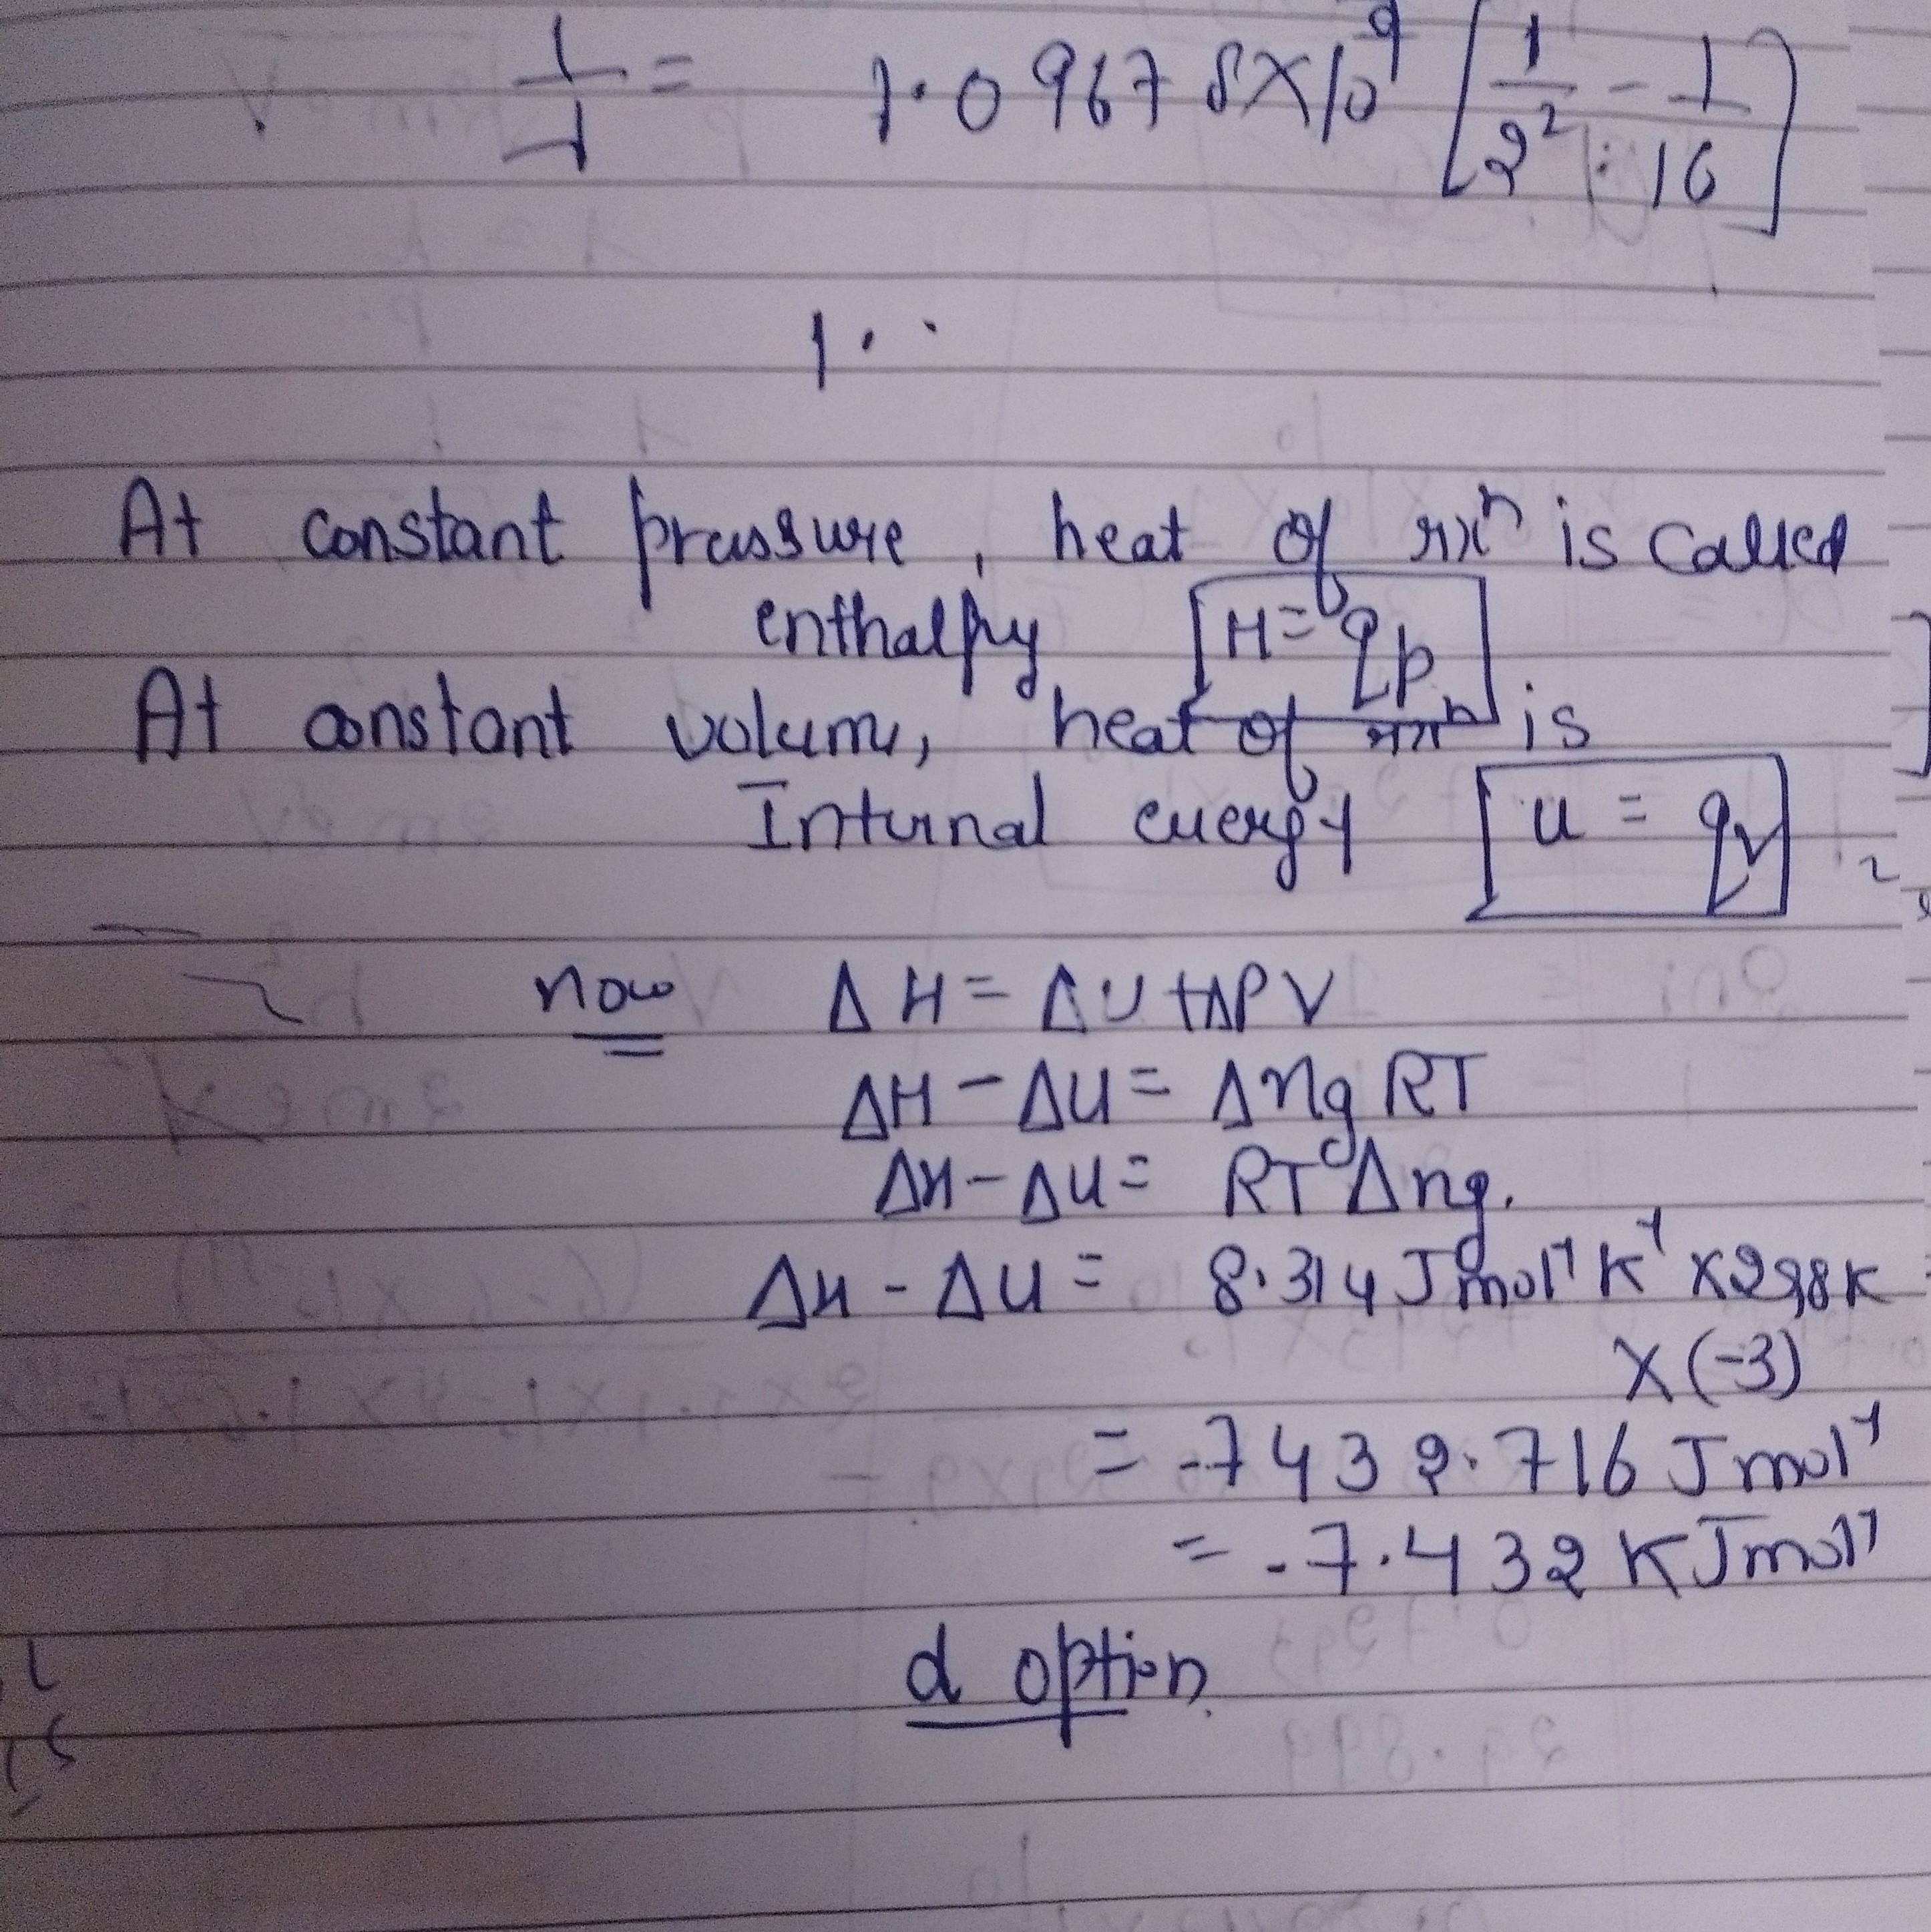 1/λ = 1.09678×10⁹ [1/2² - 1/16]
1.
At constant pressure, heat of rxⁿ is called
enthalpy [H = qp]
At constant volume, heat of rxⁿ is
Internal energy [u = qv]
now ΔH = ΔU + ΔPV
ΔH - ΔU = Δng RT
ΔH - ΔU = RT Δng.
ΔH - ΔU = 8.314 J mol⁻¹ K⁻¹ × 298K
× (-3)
= -7432.716 J mol⁻¹
= -7.432 KJ mol⁻¹
d option